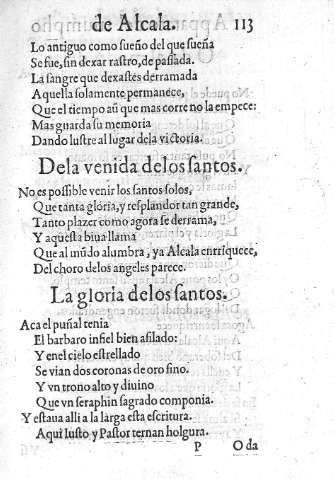 de Alcala. 113
Lo antiguo como sueño del que sueña
Se fue, sin dexar rastro, de passada.
La sangre que dexastes derramada
Aquella solamente permanece,
Que el tiempo aũ que mas corre no la empece:
Mas guarda su memoria
Dando lustre al lugar dela victoria.
Dela venida delos santos.
No es possible venir los santos solos,
Que tanta gloria, y resplandor tan grande,
Tanto plazer como agora se derrama,
Y aquesta biua llama
Que al mũdo alumbra, ya Alcala enrriquece,
Del choro delos angeles parece.
La gloria delos santos.
Aca el puñal tenia
El barbaro infiel bien afilado:
Y en el cielo estrellado
Se vian dos coronas de oro fino.
Y vn trono alto y diuino
Que vn seraphin sagrado componia.
Y estaua alli a la larga esta escritura.
Aqui Iusto y Pastor ternan holgura.
P Oda